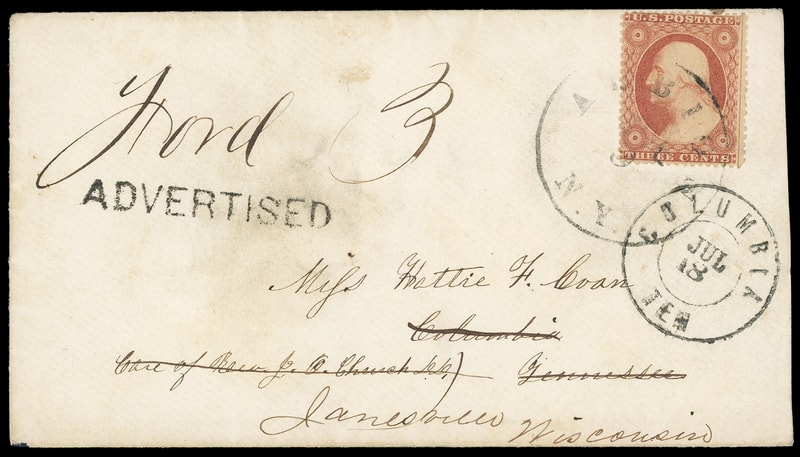 U.S. POSTAGE
THREE CENTS
ALBI
N.Y.
Ford 3
ADVERTISED
COLUMBIA
JUL
18
TEN
Miss Hattie F. Coan
Columbia
Care of Rev J. O. Church
Tennessee
Janesville
Wisconsin